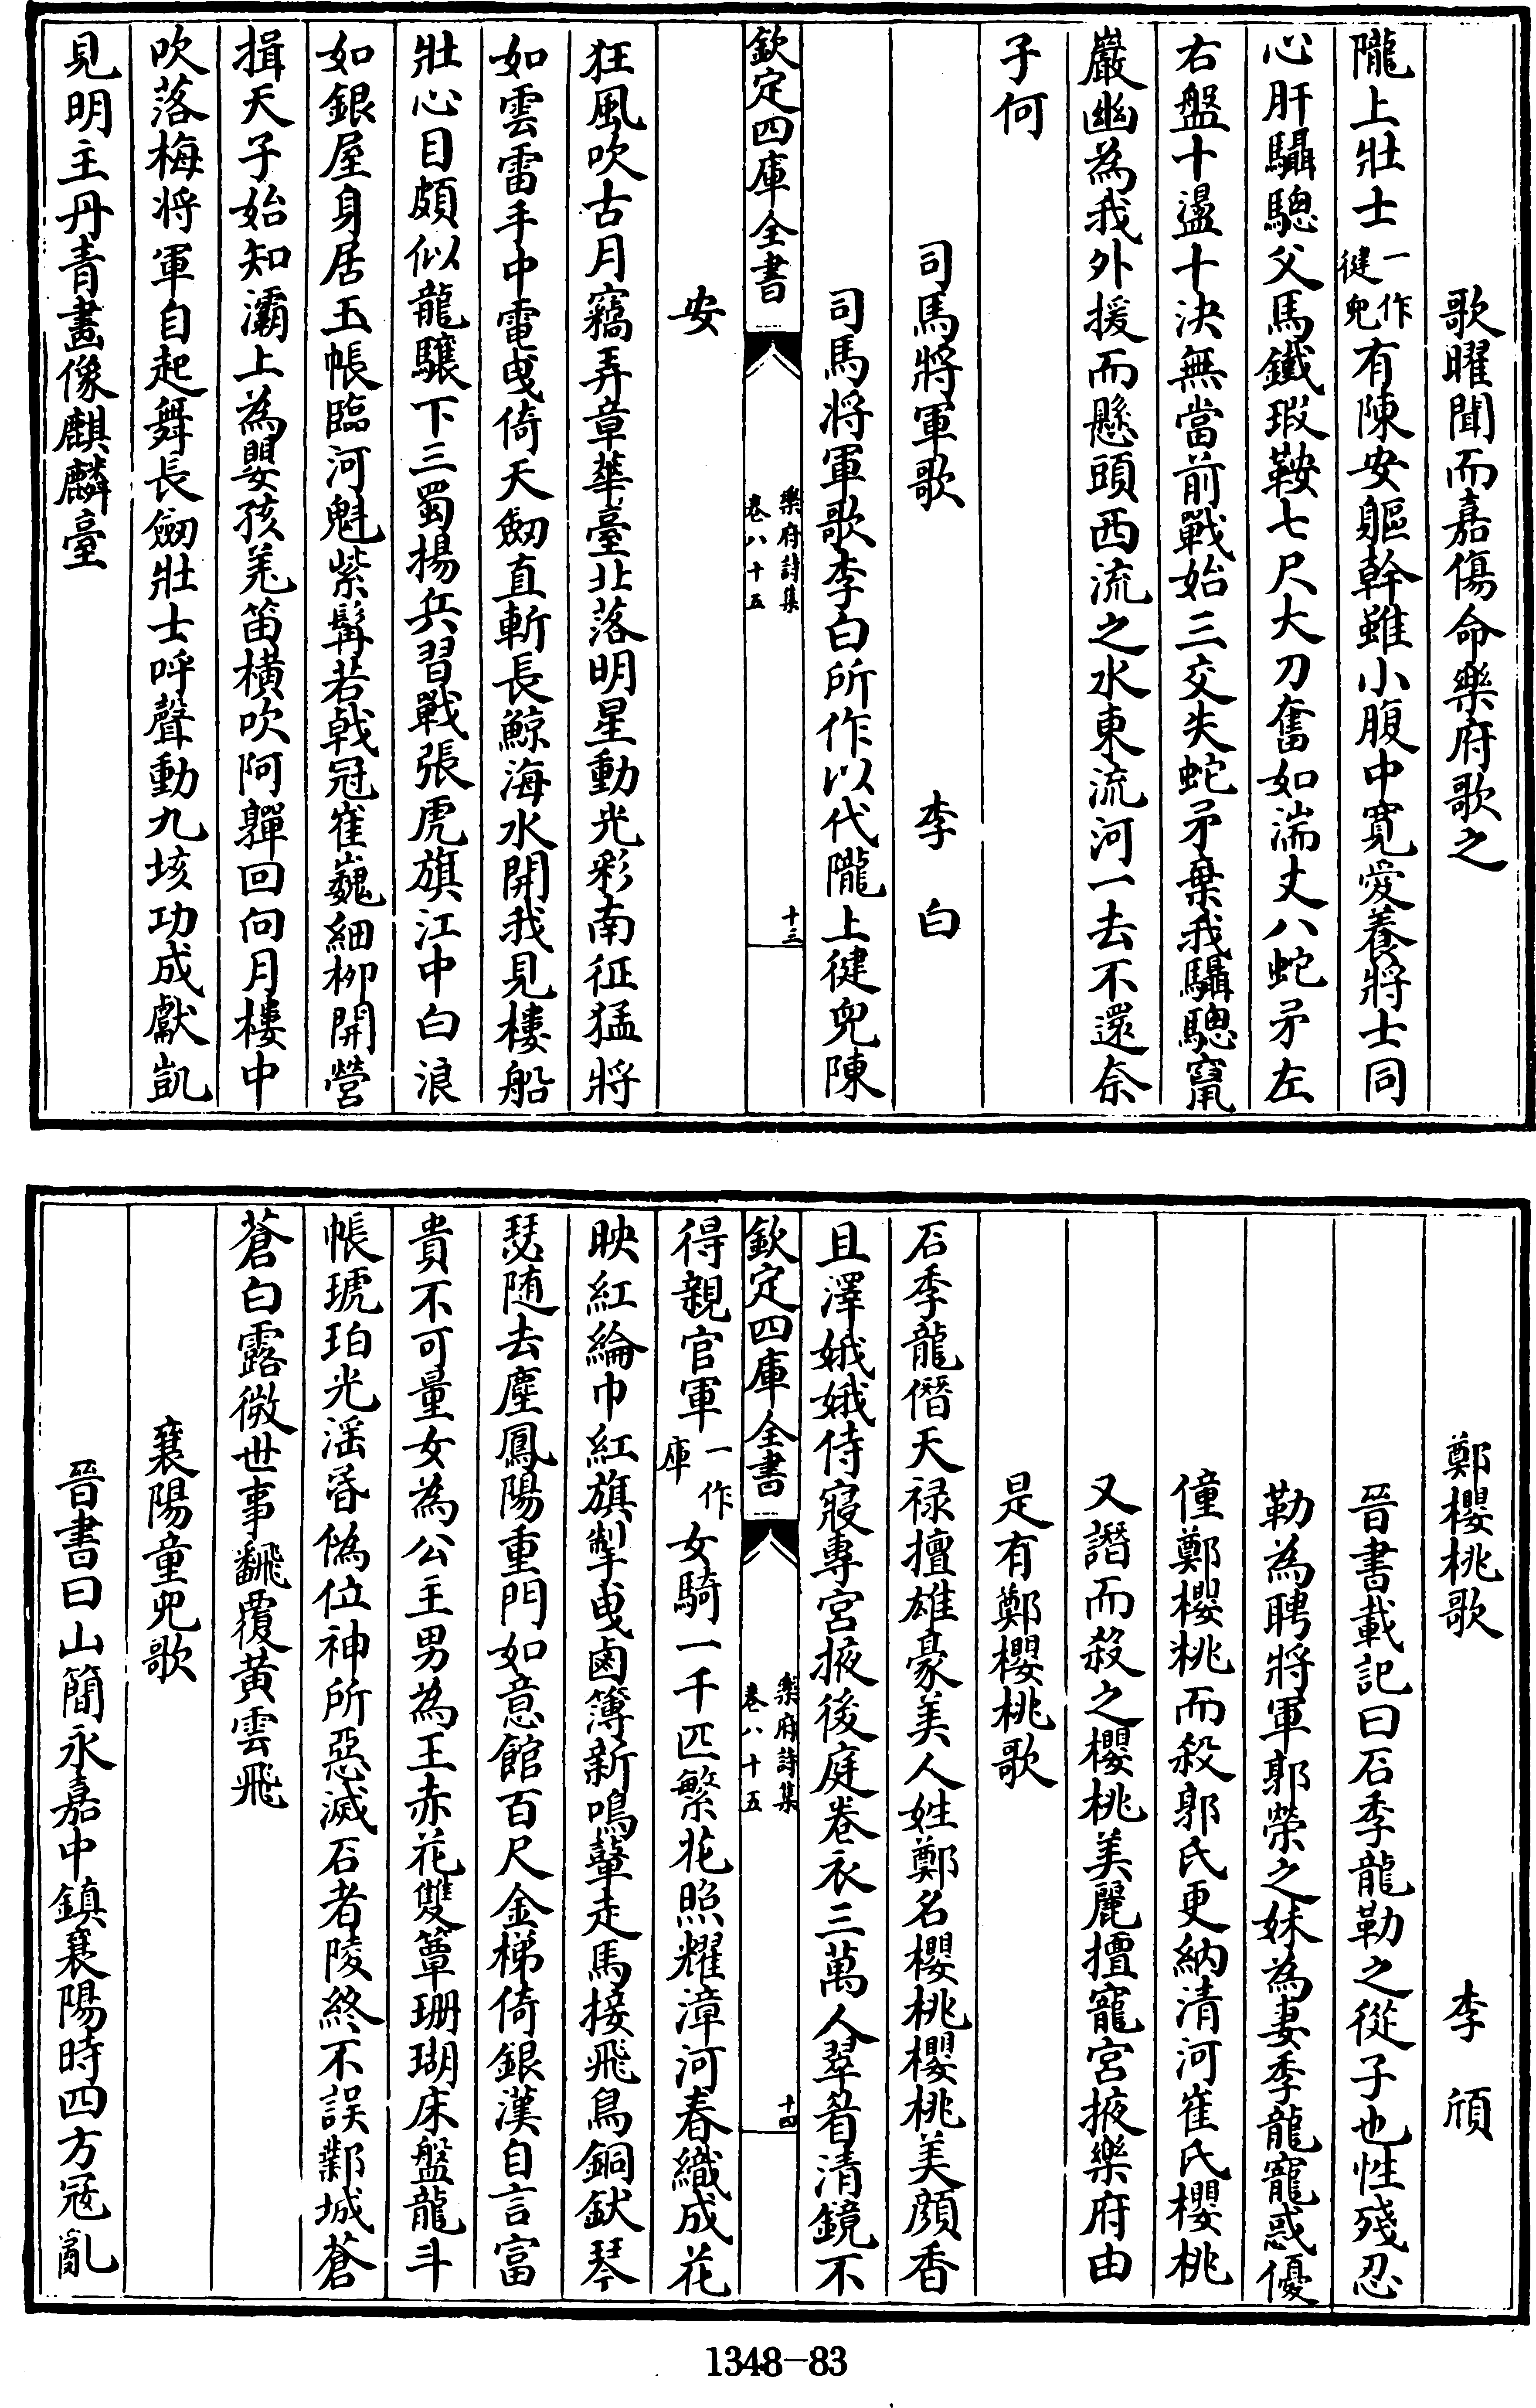 歌曜聞而嘉傷命樂府歌之
隴上壯士一作健兒有陳安軀幹雖小腹中寛愛養將士同
心肝驌驄父馬鐵瑕鞍七尺大刀奮如湍丈八蛇矛左
右盤十盪十決無當前戰始三交失蛇矛棄我驌驄竄
巖幽為我外援而懸頭西流之水東流河一去不還奈
子何
司馬將軍歌 李白
司馬將軍歌李白所作以代隴上健兒陳
欽定四庫全書 樂府詩集 卷八十五 十三
安
狂風吹古月竊弄章華臺北落明星動光彩南征猛將
如雲雷手中電曳倚天劒直斬長鯨海水開我見樓船
壯心目頗似龍驤下三蜀揚兵習戰張虎旗江中白浪
如銀屋身居玉帳臨河魁紫髯若戟冠崔巍細栁開營
揖天子始知灞上為嬰孩羌笛橫吹阿嚲回向月樓中
吹落梅将軍自起舞長劒壯士呼聲動九垓功成獻凱
見明主丹青畫像麒麟臺
鄭櫻桃歌 李頎
晉書載記曰石季龍勒之從子也性殘忍
勒為聘將軍郭榮之妹為妻季龍寵惑優
僮鄭櫻桃而殺郭氏更納清河崔氏櫻桃
又譖而殺之櫻桃美麗擅寵宮掖樂府由
是有鄭櫻桃歌
石季龍僭天禄擅雄豪美人姓鄭名櫻桃櫻桃美顔香
且澤娥娥侍寢專宮掖後庭卷衣三萬人翠眉清鏡不
欽定四庫全書 樂府詩集 卷八十五 十四
得親官軍一作庫女騎一千匹繁花照耀漳河春織成花
映紅綸巾紅旗掣曳鹵簿新鳴鼙走馬接飛鳥銅鈇琴
瑟随去塵鳳陽重門如意館百尺金梯倚銀漢自言富
貴不可量女為公主男為王赤花雙簟珊瑚床盤龍斗
帳琥珀光淫昏偽位神所惡滅石者陵終不誤鄴城蒼
蒼白露微世事飜覆黄雲飛
襄陽童兒歌
晉書曰山簡永嘉中鎮襄陽時四方冦亂
1348-83